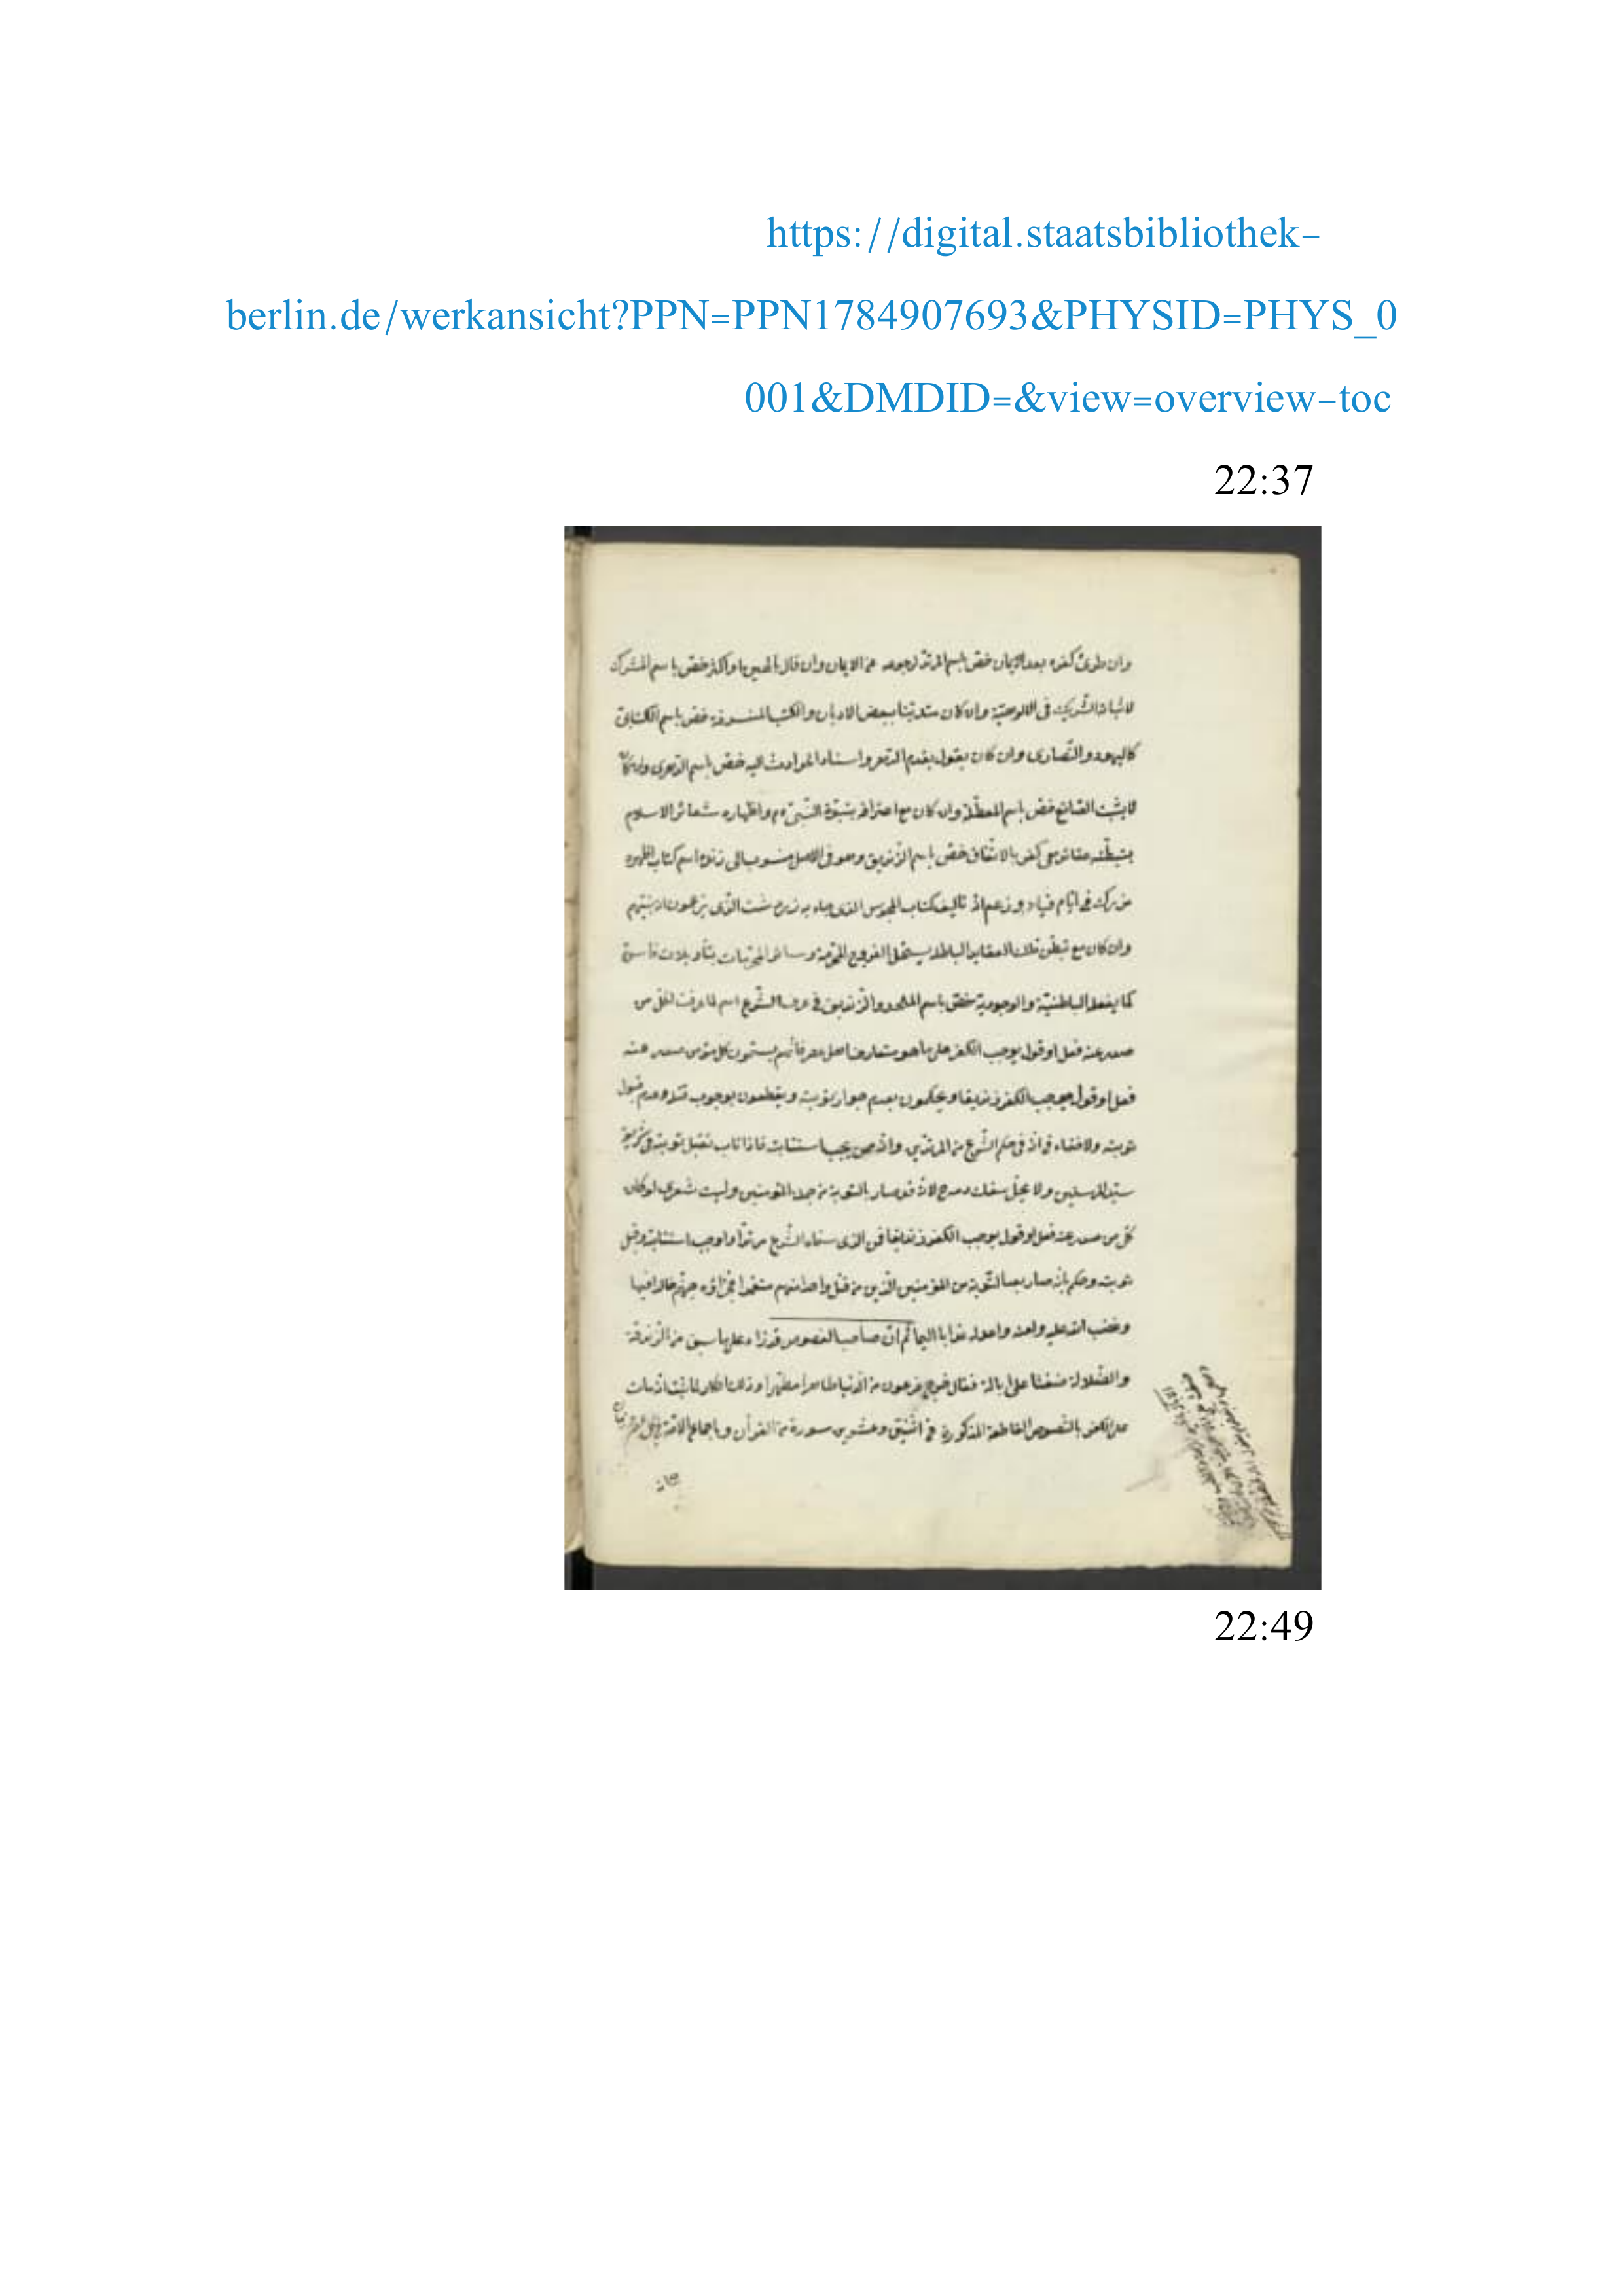 https://digital.staatsbibliothek-
berlin.de/werkansicht?PPN=PPN1784907693&PHYSID=PHYS_0
001&DMDID=&view=overview-toc
22:37
وان طرئ كفره بعد الايمان خص باسم المرتد لرجوعه عن الايمان وان قال بالهين او اكثر خص باسم المشرك
لاثبات الشريك فى الالوهية وان كان متدينا ببعض الاديان والكتب المنسوخة خص باسم الكتابى
كاليهود والنصارى وان كان يقول بقدم الدهر واسناد الحوادث اليه خص باسم الدهرى وان كان
لا يثبت الصانع خص باسم المعطلة وان كان مع اعترافه بنبوة النبى وم واظهاره شعائر الاسلام
عقائد هى كفر بالاتفاق خص باسم الزنديق وهو فى الاصل منسوب الى زند اسم كتاب اظهره
مزدك فى ايام قباد وزعم انه تاليف كتاب المجوس الذى جاء به زردشت الذى يزعمون انه نبيهم
وان كان مع تبطن تلك العقايد الباطلة يستحل الفروج المحرمة وسائر المحرمات بتأويلات فاسدة
كما يفعله الباطنية والوجودية خص باسم الملحد والزنديق فى عرف الشرع اسم لما عرفت لا لكل من
صدر عنه فعل او قول يوجب الكفر على ما هو متعارف اهل مصر فانهم يسمون كل مؤمن صدر عنه
فعل او قول يوجب الكفر زنديقا ويحكمون بعدم جواز توبته ويقطعون بوجوب قتله وعدم قبول
توبته ولا خفاء فى انه فى حكم الشرع من المرتدين وانه ممن يجب استتابته فاذا تاب تقبل توبته فى شريعة
سيد المرسلين ولا يحل سفك دمه لانه قد صار بالتوبة من جملة المؤمنين وليت شعرى لو كان
كل من صدر عنه فعل او قول يوجب الكفر زنديقا فمن الذى سماه الشرع مرتدا واوجب استتابته وقبل
توبته وحكم بانه صار بعد التوبة من المؤمنين الذين من قتل واحدا منهم متعمدا فجزاؤه جهنم خالدا فيها
وغضب الله عليه ولعنه واعد له عذابا اليما ثم ان صاحب الفصوص قد زاد على ما سبق من الزندقة
والضلالة ضغثا على ابالة فقال خرج فرعون من الدنيا طاهرا مطهرا وذلك انكار لما ثبت انه مات
على الكفر بالنصوص القاطعة المذكورة فى اثنين وعشرين سورة من القرآن وباجماع الامة
22:49